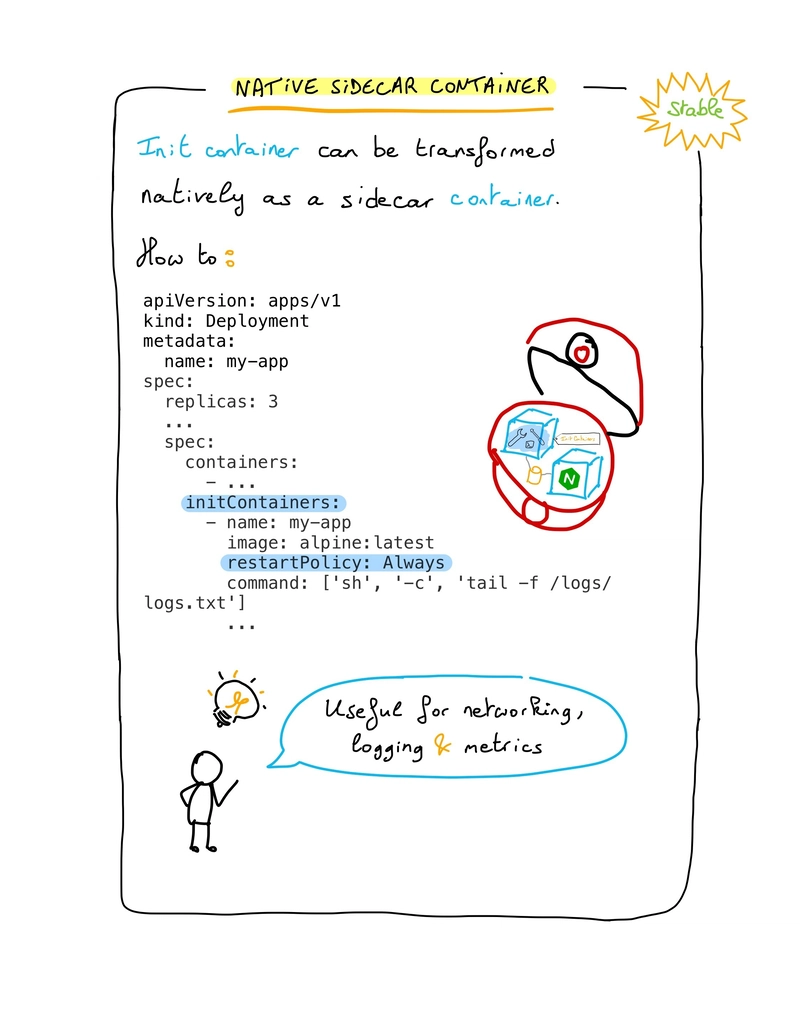 NATIVE SIDECAR CONTAINER
Stable
Init container can be transformed
natively as a sidecar container.
How to :
apiVersion: apps/v1
kind: Deployment
metadata:
  name: my-app
spec:
  replicas: 3
  ...
  spec:
    containers:
      - ...
    initContainers:
      - name: my-app
        image: alpine:latest
        restartPolicy: Always
        command: ['sh', '-c', 'tail -f /logs/
logs.txt']
        ...
Init Container
N
Useful for networking,
logging & metrics